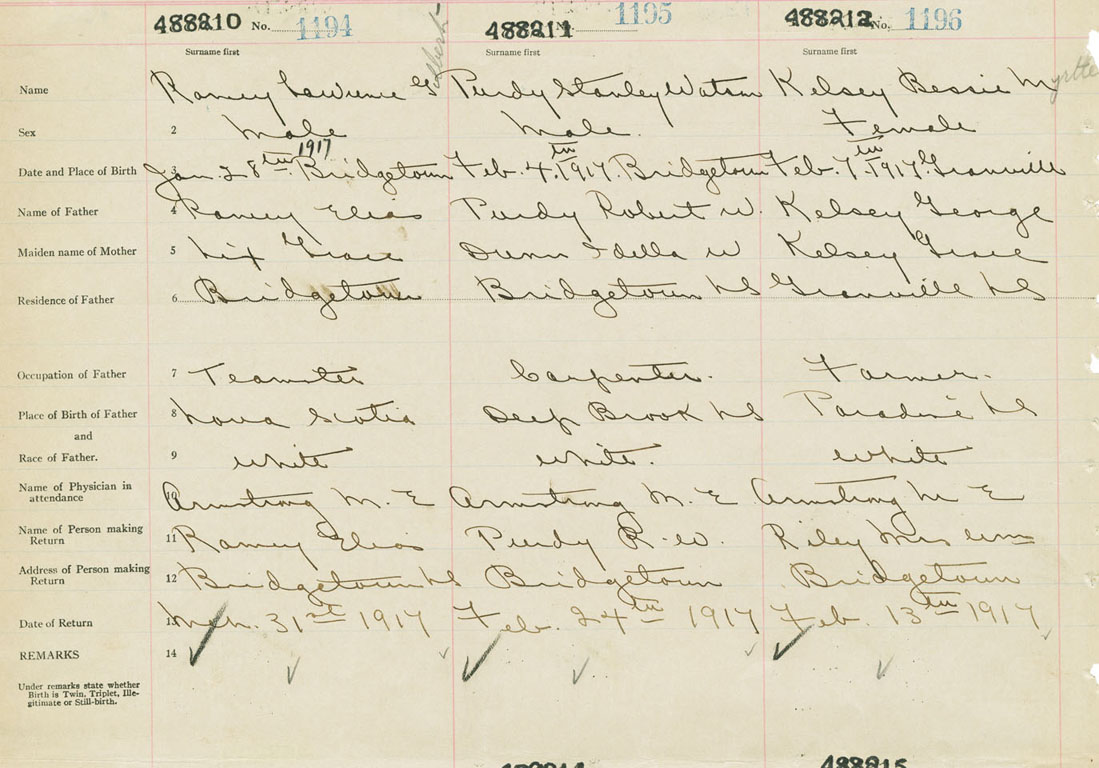 488210 No. 1194 488211 No. 1195 488212 No. 1196
Surname first Surname first Surname first
Name Ramey Lawrence G Gilbert Purdy Stanley Watson Kelsey Bessie Myrtle
Sex 2 Male Male. Female
Date and Place of Birth 3 Jan. 28th 1917 Bridgetown Feb. 4th 1917. Bridgetown Feb. 7th 1917. Granville
Name of Father 4 Ramey Elias Purdy Robert W. Kelsey George
Maiden name of Mother 5 Grace Dunn Idella W Kelsey Grace
Residence of Father 6 Bridgetown Bridgetown NS Granville NS
Occupation of Father 7 Teamster Carpenter. Farmer.
Place of Birth of Father 8 Nova Scotia Deep Brook NS Paradise NS
and
Race of Father. 9 White White. White
Name of Physician in attendance 10 Armstrong M. E Armstrong M. E Armstrong M E
Name of Person making Return 11 Ramey Elias Purdy R. W. Riley Mrs Wm
Address of Person making Return 12 Bridgetown NS Bridgetown Bridgetown
Date of Return 13 Mch. 31st 1917 Feb. 24th 1917 Feb. 13th 1917
REMARKS 14
Under remarks state whether
Birth is Twin, Triplet, Ille-
gitimate or Still-birth.